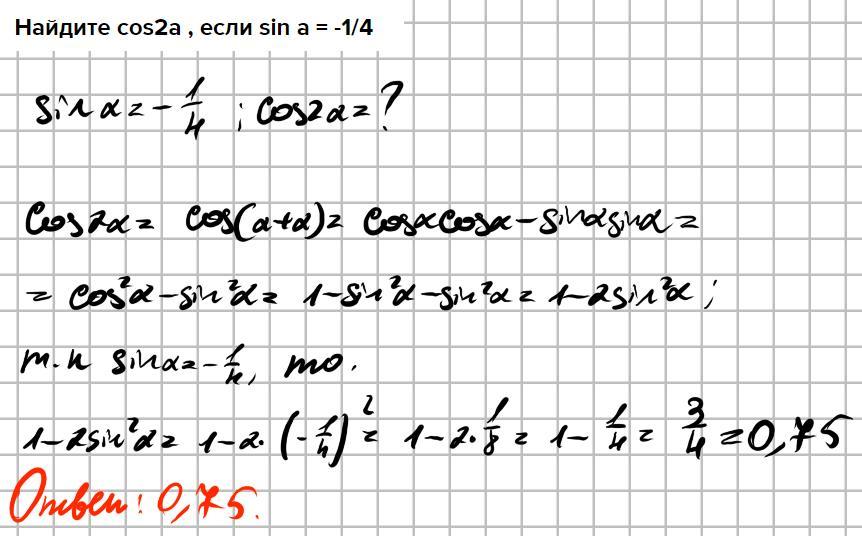 Найдите cos2a , если sin a = -1/4
sin α = - 1/4 ; cos2α = ?
cos2α = cos(α+α) = cosα cosα - sinα sinα =
= cos²α - sin²α = 1 - sin²α - sin²α = 1 - 2sin²α ;
т.к sinα = - 1/4, то.
1 - 2sin²α = 1 - 2·(- 1/4)² = 1 - 2· 1/8 = 1 - 1/4 = 3/4 = 0,75
Ответ: 0,75.